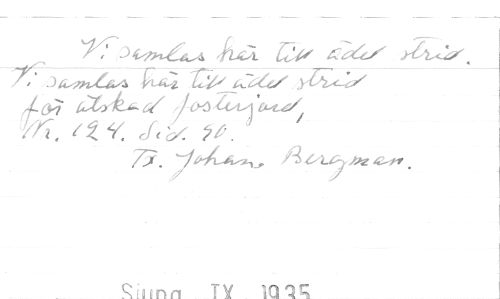 Vi samlas här till ädel strid.
Vi samlas här till ädel strid
för älskad fosterjord,
Nr. 124. Sid. 90.
Tx. Johan Bergman.
Sjung IX 1935